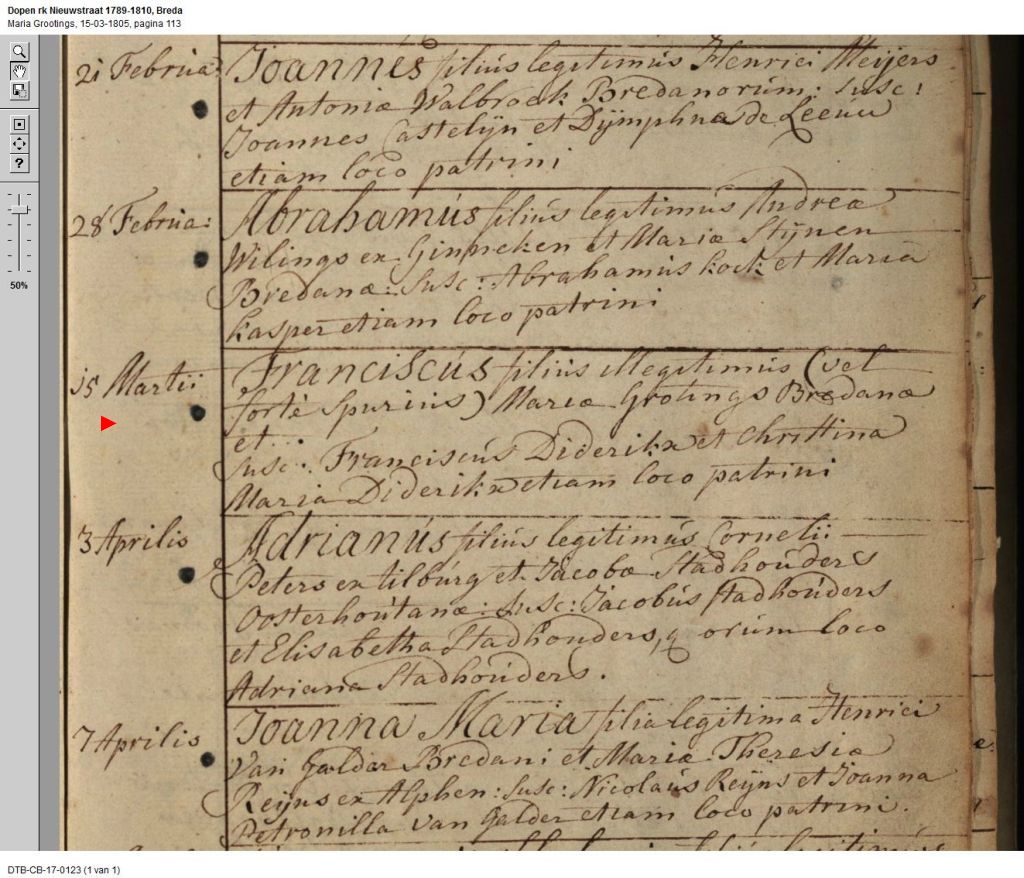 Dopen rk Nieuwstraat 1789-1810, Breda
Maria Grootings, 15-03-1805, pagina 113
50%
21 Februa: Joannes filius legitimus Henrici Meijers
et Antoniæ Walbroek Bredanorum: Susc:
Joannes Castelijn et Dijmphna de Leeuw
etiam loco patrini
28 Februa: Abrahamus filius legitimus Andreæ
Wilings ex Ginneken et Mariæ Stijnen
Bredanæ: Susc: Abrahamus kock et Maria
kasper etiam loco patrini
15 Martii Franciscus filius illegitimus (vel
fortè spurius) Mariæ Grotings Bredanæ
et ...
Susc: Franciscus Diderikx et Christina
Maria Diderikx etiam loco patrini
3 Aprilis Adrianus filius legitimus Cornelii
Peters ex tilburg et Jacobæ Stadhouders
Oosterhoutanæ: Susc: Jacobus stadhouders
et Elisabetha Stadhouders, q orum loco
Adriana Stadhouders.
7 Aprilis Joanna Maria filia legitima Henrici
Van Galder Bredani et Mariæ Theresiæ
Reijns ex Alphen: Susc: Nicolaus Reijns et Joanna
Petronilla van Galder etiam loco patrini.
DTB-CB-17-0123 (1 van 1)